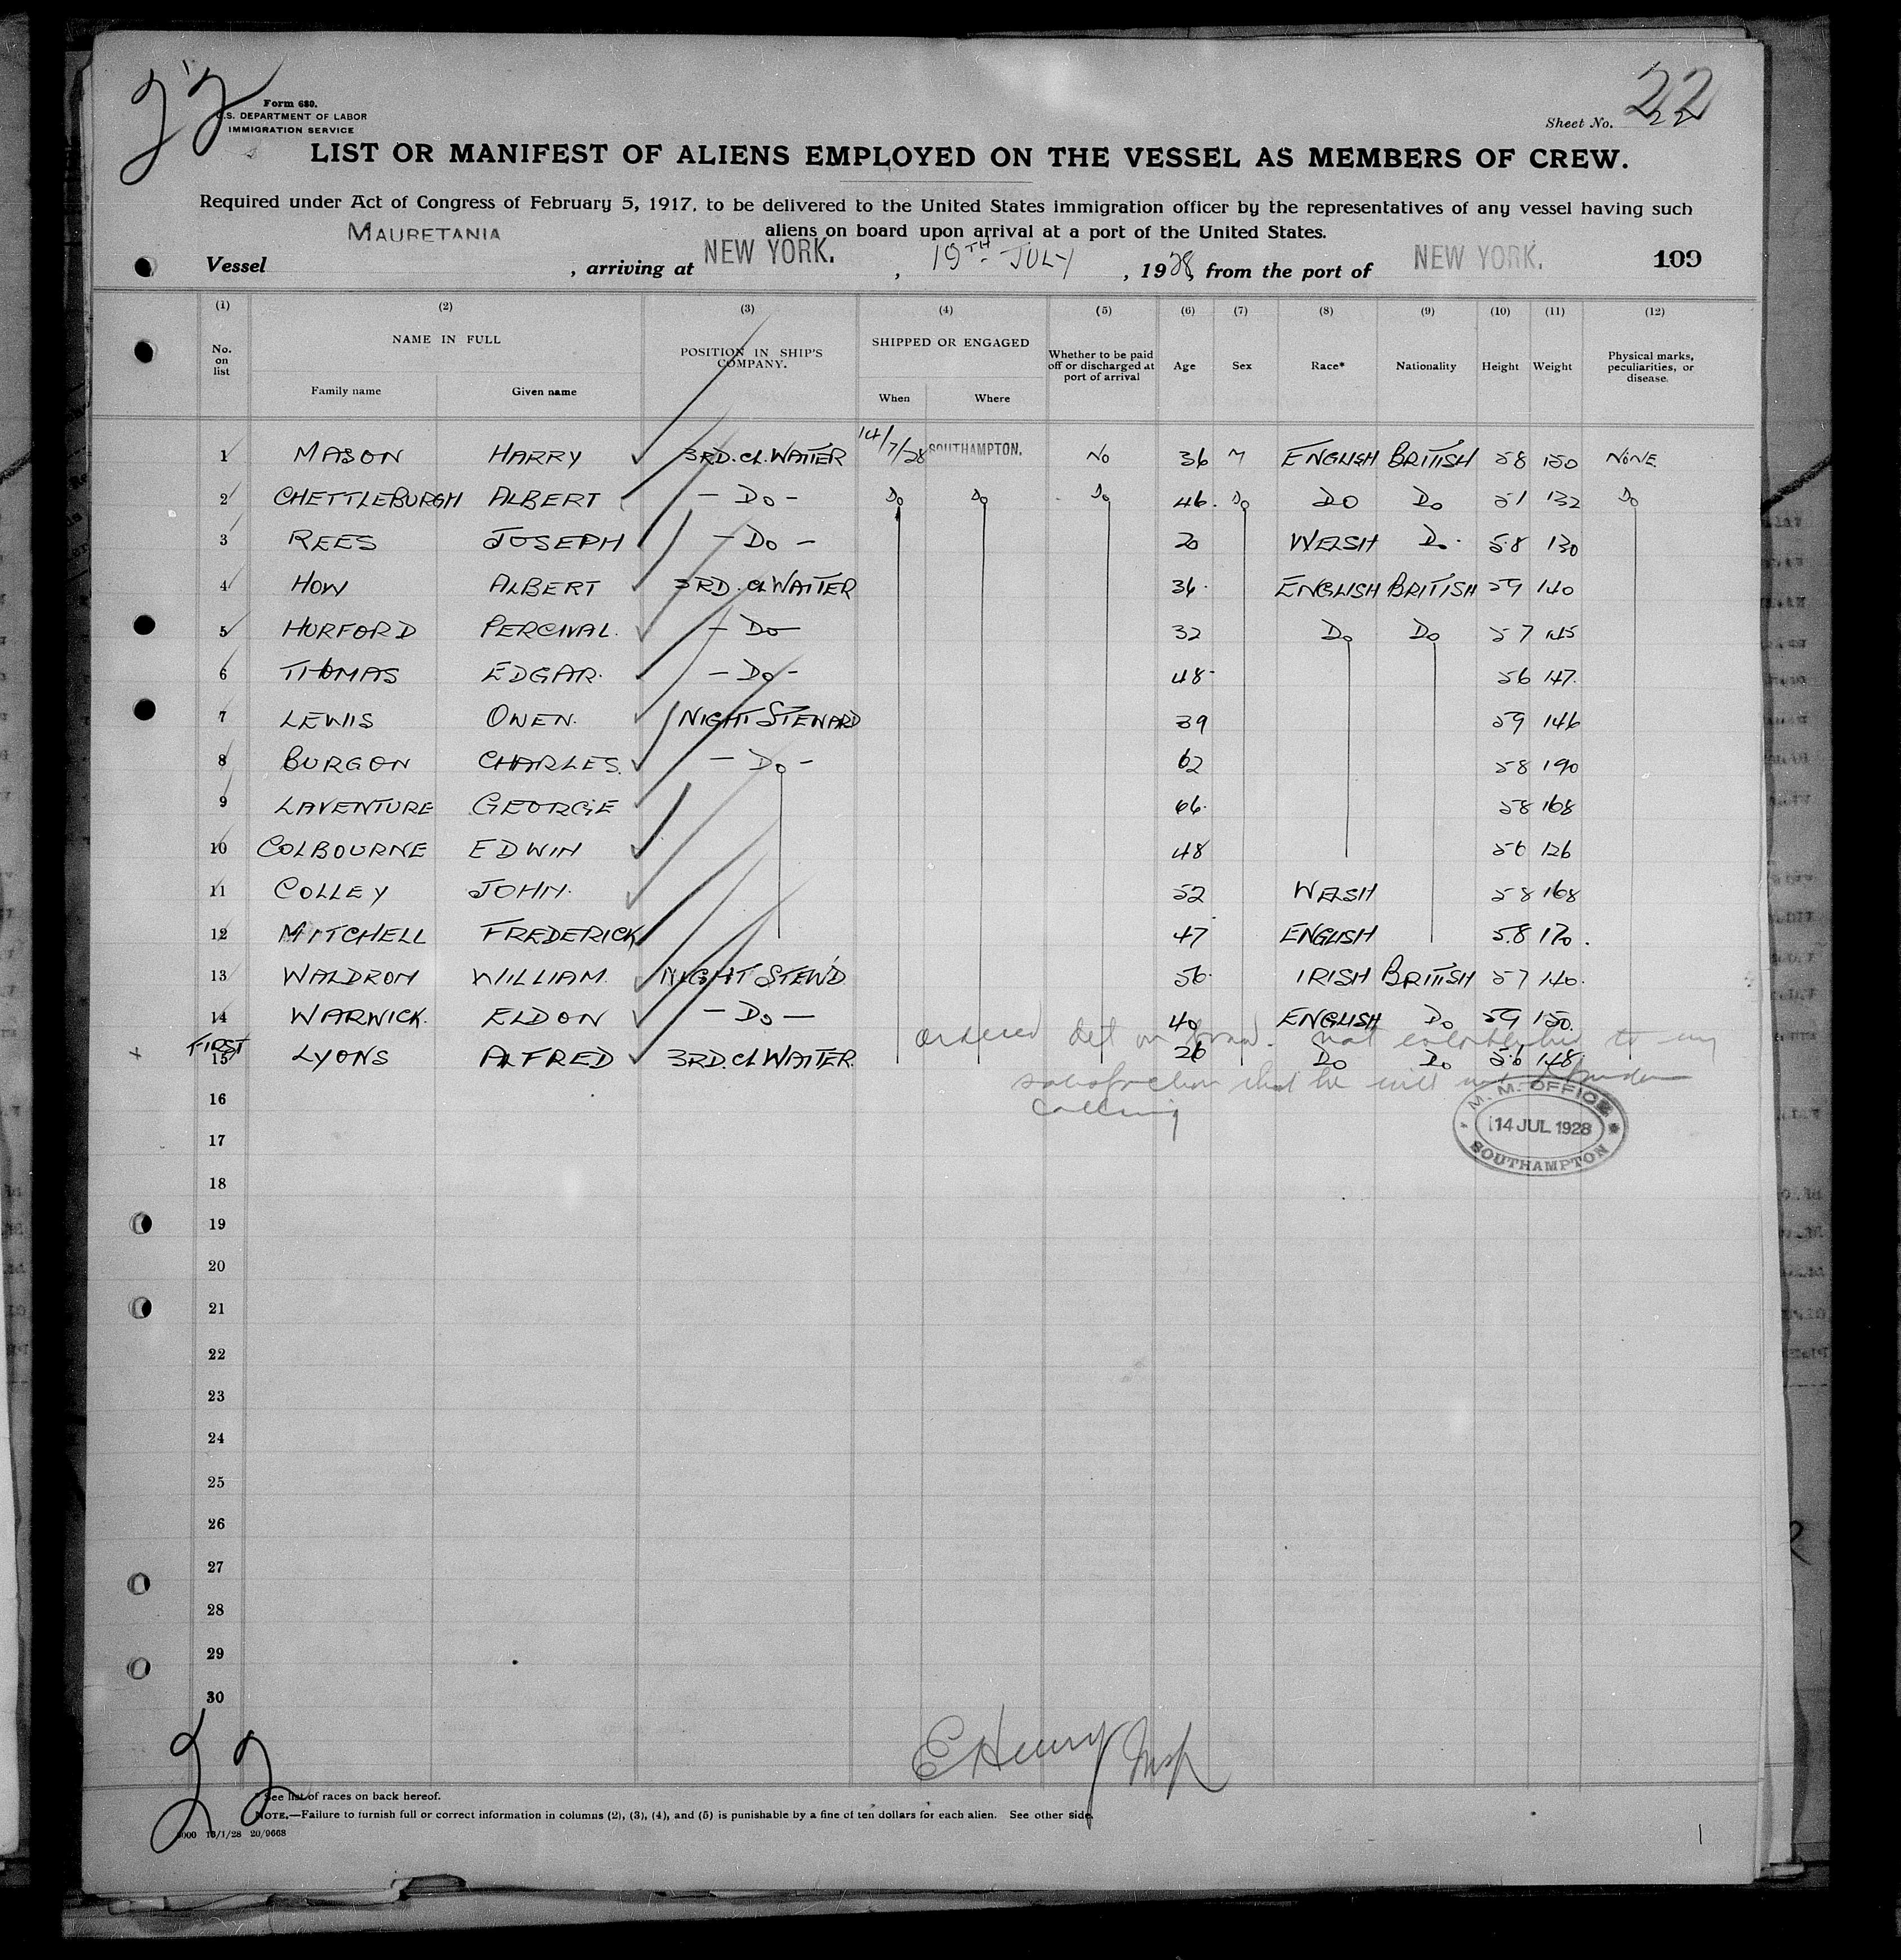 22
Form 680.
U.S. DEPARTMENT OF LABOR
IMMIGRATION SERVICE
Sheet No. 22
LIST OR MANIFEST OF ALIENS EMPLOYED ON THE VESSEL AS MEMBERS OF CREW.
Required under Act of Congress of February 5, 1917, to be delivered to the United States immigration officer by the representatives of any vessel having such
aliens on board upon arrival at a port of the United States.
Vessel MAURETANIA, arriving at NEW YORK., 19TH JULY, 1928, from the port of NEW YORK. 109
(1) (2) (3) (4) (5) (6) (7) (8) (9) (10) (11) (12)
No. on list NAME IN FULL POSITION IN SHIP'S COMPANY. SHIPPED OR ENGAGED Whether to be paid off or discharged at port of arrival Age Sex Race* Nationality Height Weight Physical marks, peculiarities, or disease.
Family name Given name When Where
1 MASON HARRY 3RD. CL. WAITER 14/7/28 SOUTHAMPTON. NO 36 M ENGLISH BRITISH 58 150 NONE
2 CHETTLEBURGH ALBERT - DO - DO DO DO 46. DO DO DO 51 132 DO
3 REES JOSEPH - DO - 20 WELSH DO. 5.8 130
4 HOW ALBERT 3RD. CL WAITER 36. ENGLISH BRITISH 59 140
5 HURFORD PERCIVAL. - DO - 32 DO DO 57 145
6 THOMAS EDGAR. - DO - 48 56 147.
7 LEWIS OWEN. NIGHT STEWARD 39 59 146
8 BURGON CHARLES. - DO - 62 58 190
9 LAVENTURE GEORGE 66. 58 168
10 COLBOURNE EDWIN 48 56 126
11 COLLEY JOHN. 52 WELSH 58 168
12 MITCHELL FREDERICK 47 ENGLISH 5.8 170.
13 WALDRON WILLIAM. NIGHT STEW'D. 56. IRISH BRITISH 57 140.
14 WARWICK. ELDON - DO - 40 ENGLISH DO 59 150.
ordered det on board. Not established to my
FIRST
15 LYONS ALFRED 3RD. CL WAITER. 26 DO DO 5.6 148
satisfaction that he will not abandon
calling
16
M. M. OFFICE
14 JUL 1928
SOUTHAMPTON
17
18
19
20
21
22
23
24
25
26
27
28
29
30
E Henry Insp
22
* See list of races on back hereof.
NOTE.—Failure to furnish full or correct information in columns (2), (3), (4), and (5) is punishable by a fine of ten dollars for each alien. See other side.
20/9668